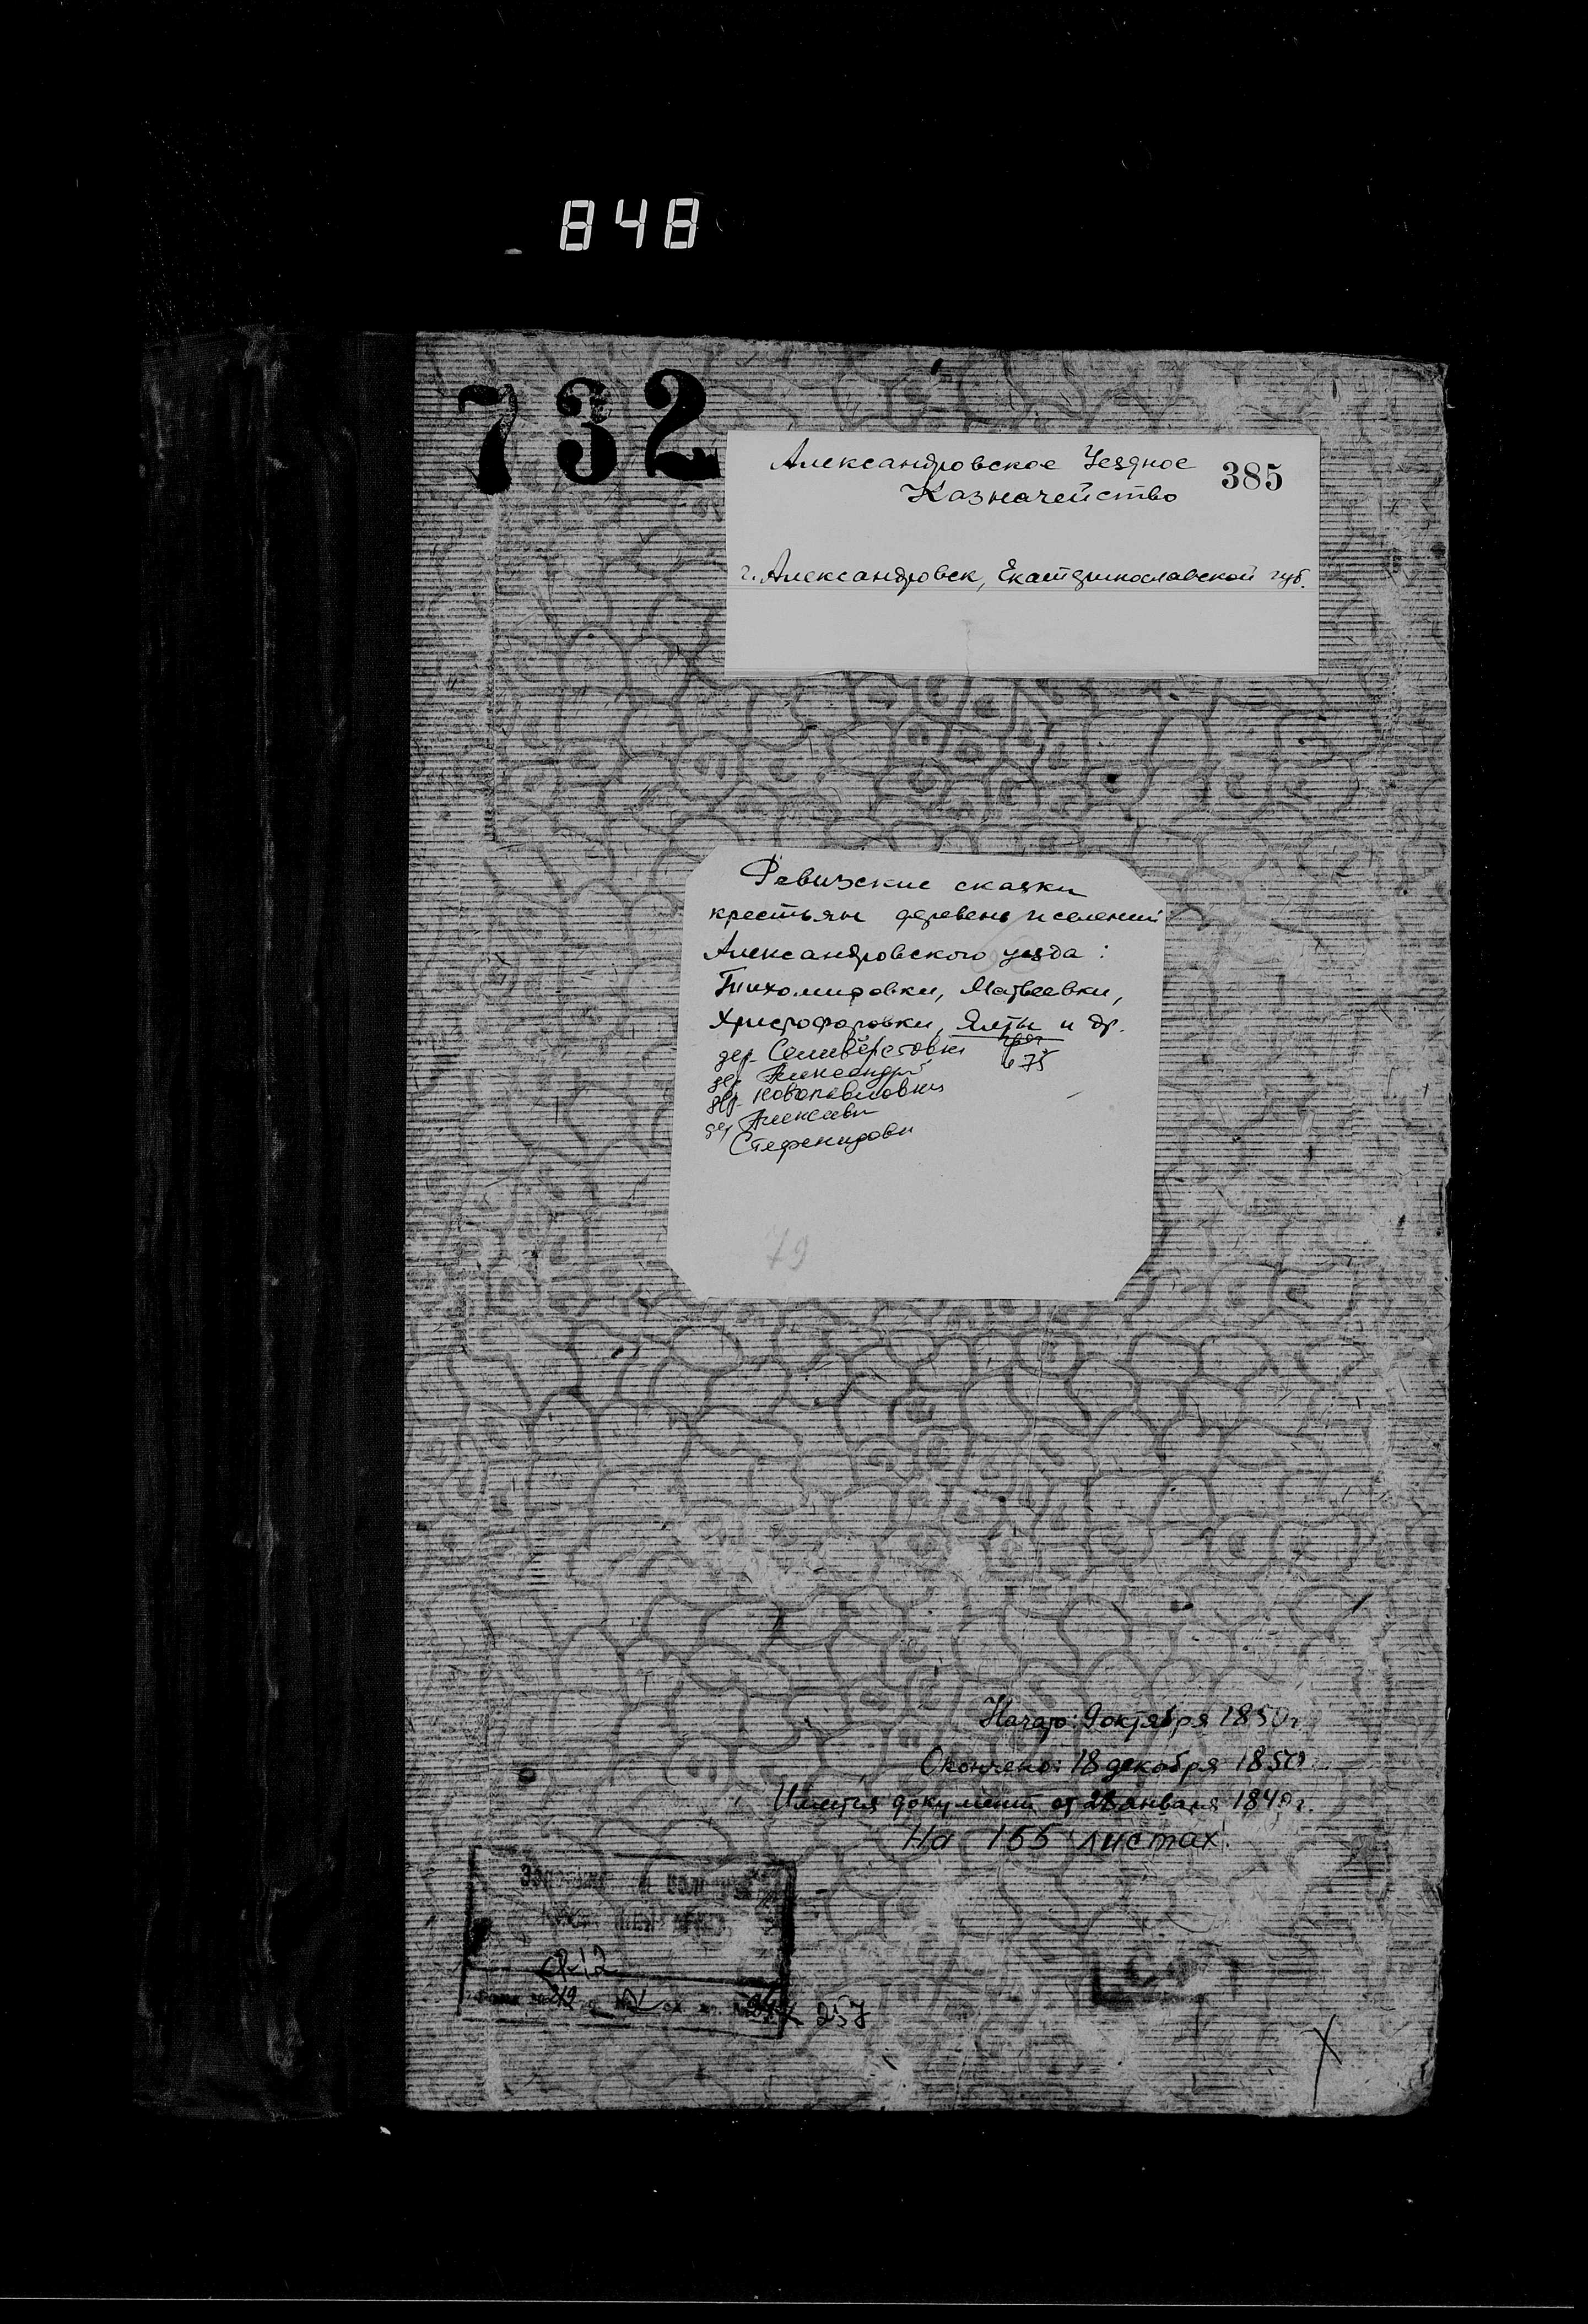 848
732
Александровское Уездное
385
Казначейство
г. Александровск, Екатеринославской губ.
Ревизские сказки
крестьян деревень и селений
Александровского уезда:
Тихомировки, Матвеевки,
Христофоровки, Ялты и др.
дер. Селивёрстовки
75
дер. Александрй
дер. Новопавловки
дер Алексеевк
79
Начато: 9 октября 1850 г
Окончено: 18 декабря 1850
Имеется документ от 28 января 1840 г.
На 155 листах
257
X